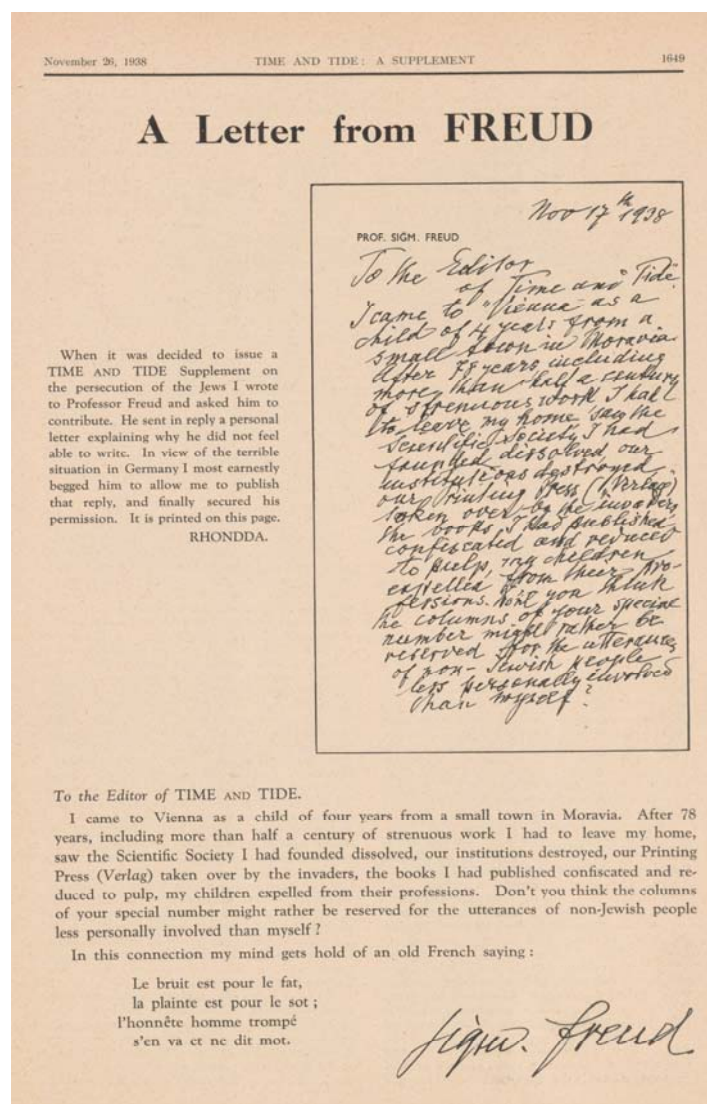 November 26, 1938
TIME AND TIDE: A SUPPLEMENT
1649
A Letter from FREUD
When it was decided to issue a
TIME AND TIDE Supplement on
the persecution of the Jews I wrote
to Professor Freud and asked him to
contribute. He sent in reply a personal
letter explaining why he did not feel
able to write. In view of the terrible
situation in Germany I most earnestly
begged him to allow me to publish
that reply, and finally secured his
permission. It is printed on this page.
RHONDDA.
Nov 17th 1938
PROF. SIGM. FREUD
To the Editor
of "Time and Tide"
I came to Vienna as a
child of 4 years from a
small town in Moravia.
After 78 years including
more than half a century
of strenuous work I had
to leave my home, saw the
Scientific Society I had
founded dissolved, our
institutions destroyed,
our Printing Press (Verlag)
taken over by the invaders,
the books I had published
confiscated and reduced
to pulp, my children
expelled from their pro-
fessions. Don't you think
the columns of your special
number might rather be
reserved for the utterances
of non-Jewish people
less personally involved
than myself?
To the Editor of TIME AND TIDE.
I came to Vienna as a child of four years from a small town in Moravia. After 78
years, including more than half a century of strenuous work I had to leave my home,
saw the Scientific Society I had founded dissolved, our institutions destroyed, our Printing
Press (Verlag) taken over by the invaders, the books I had published confiscated and re-
duced to pulp, my children expelled from their professions. Don't you think the columns
of your special number might rather be reserved for the utterances of non-Jewish people
less personally involved than myself?
In this connection my mind gets hold of an old French saying:
Le bruit est pour le fat,
la plainte est pour le sot;
l'honnête homme trompé
s'en va et ne dit mot.
Sigm. Freud